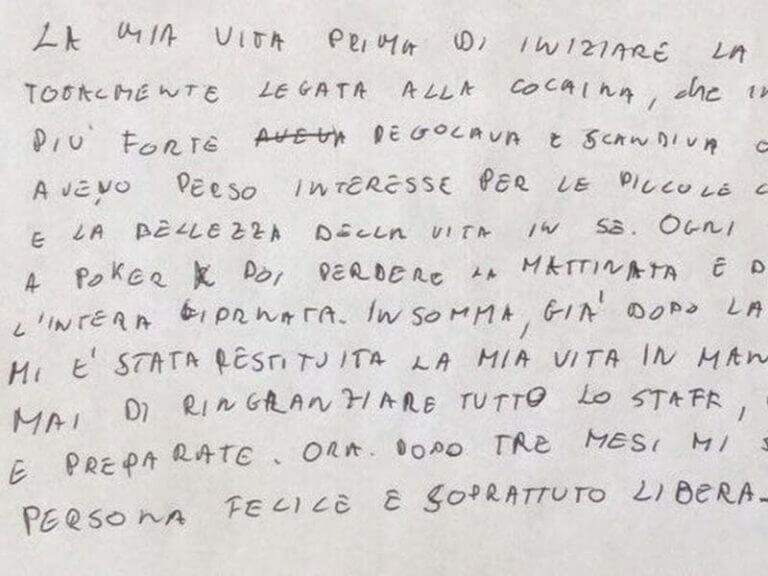 LA MIA VITA PRIMA DI INIZIARE LA
TOTALMENTE LEGATA ALLA COCAINA, che in
PIU' FORTE AVEVA REGOLAVA E SCANDIVA
AVEVO PERSO INTERESSE PER LE PICCOLE C
E LA BELLEZZA DELLA VITA IN SE. OGNI
A POKER DOI PERDERE LA MATTINATA E D
L'INTERA GIORNATA. INSOMMA, GIA' DOPO LA
MI E' STATA RESTITUITA LA MIA VITA IN MAN
MAI DI RINGRANZIARE TUTTO LO STAFF,
E PREPARATE. ORA. DOPO TRE MESI MI S
PERSONA FELICE E SOPRATTUTO LIBERA.